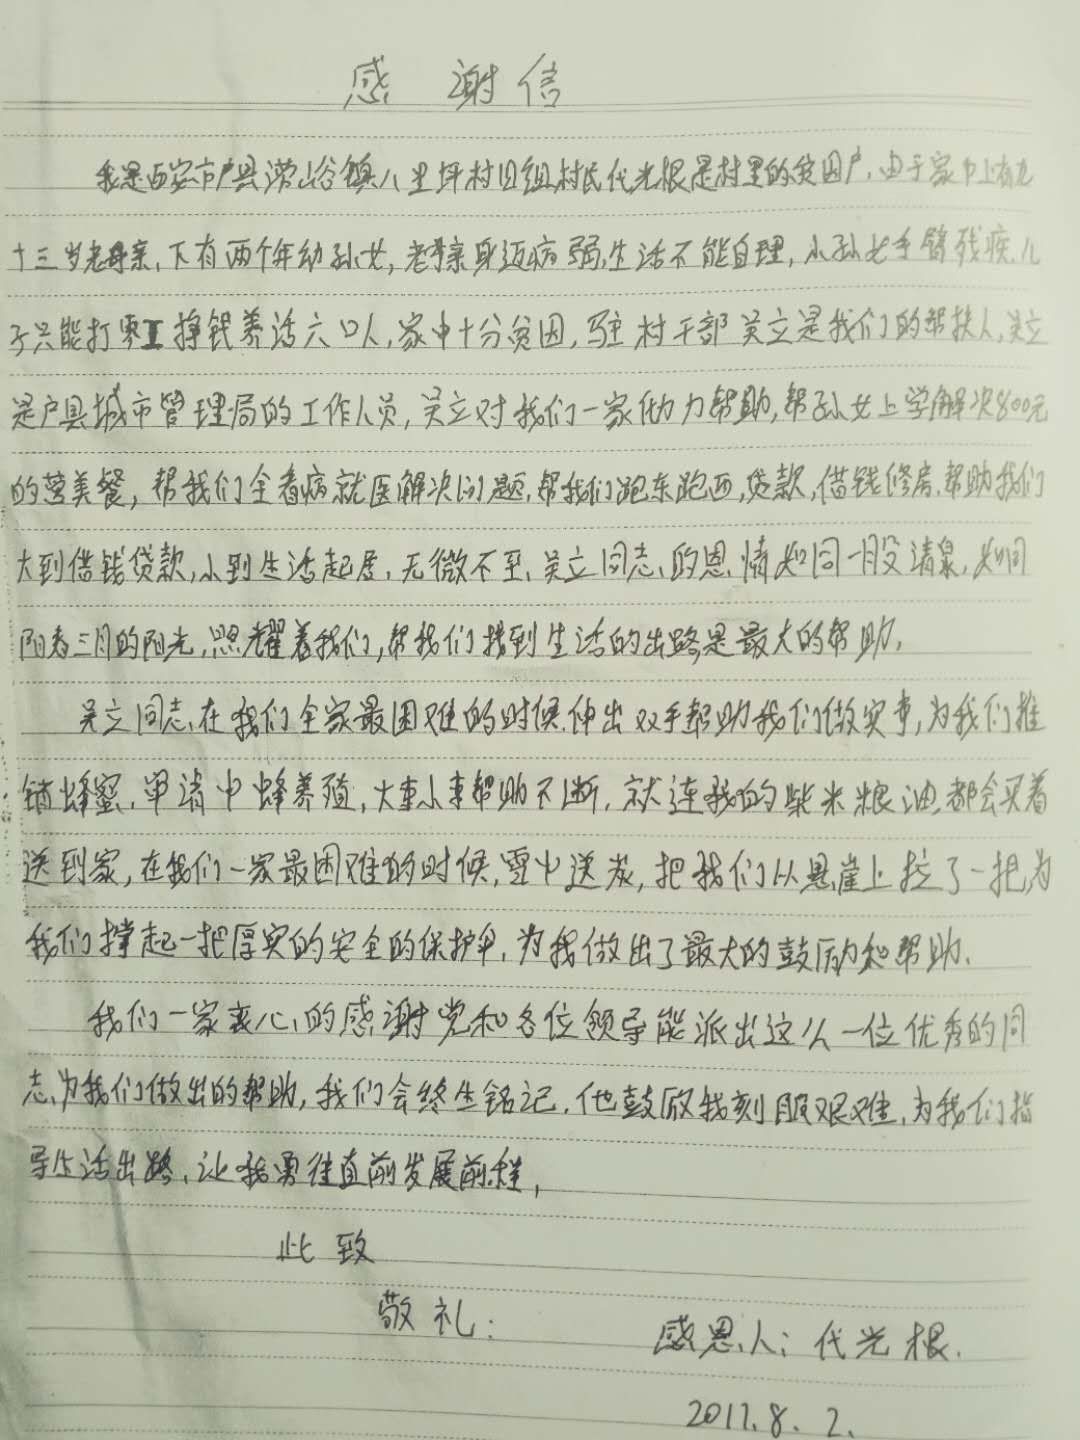 感 谢 信
我是西安市户县涝峪镇八里坪村旧组村民代光根是村里的贫困户,由于家中上有九
十三岁老母亲,下有两个年幼孙女,老母亲身迈病弱,生活不能自理,小孙女手臂残疾,儿
子只能打零工挣钱养活六口人,家中十分贫困,驻村干部吴立是我们的帮扶人,吴立
是户县城市管理局的工作人员,吴立对我们一家他力帮助,帮孙女上学解决800元
的营美餐,帮我们全看病就医解决问题,帮我们跑东跑西,贷款,借钱修房,帮助我们
大到借钱贷款,小到生活起居,无微不至,吴立同志的恩情如同一股清泉,如同
阳春三月的阳光,照耀着我们,帮我们找到生活的出路是最大的帮助,
吴立同志,在我们全家最困难的时候伸出双手帮助我们做实事,为我们推
销蜂蜜,申请中蜂养殖,大事小事帮助不断,就连我的柴米粮油都会买着
送到家,在我们一家最困难的时候,雪中送炭,把我们从悬崖上拉了一把,为
我们撑起一把厚实的安全的保护伞,为我做出了最大的鼓励和帮助.
我们一家衷心的感谢党和各位领导能派出这么一位优秀的同
志,为我们做出的帮助,我们会终生铭记.他鼓励我刻服艰难,为我们指
导生活出路,让我勇往直前发展前程,
此致
敬礼:
感恩人:代光根.
2017.8.2.